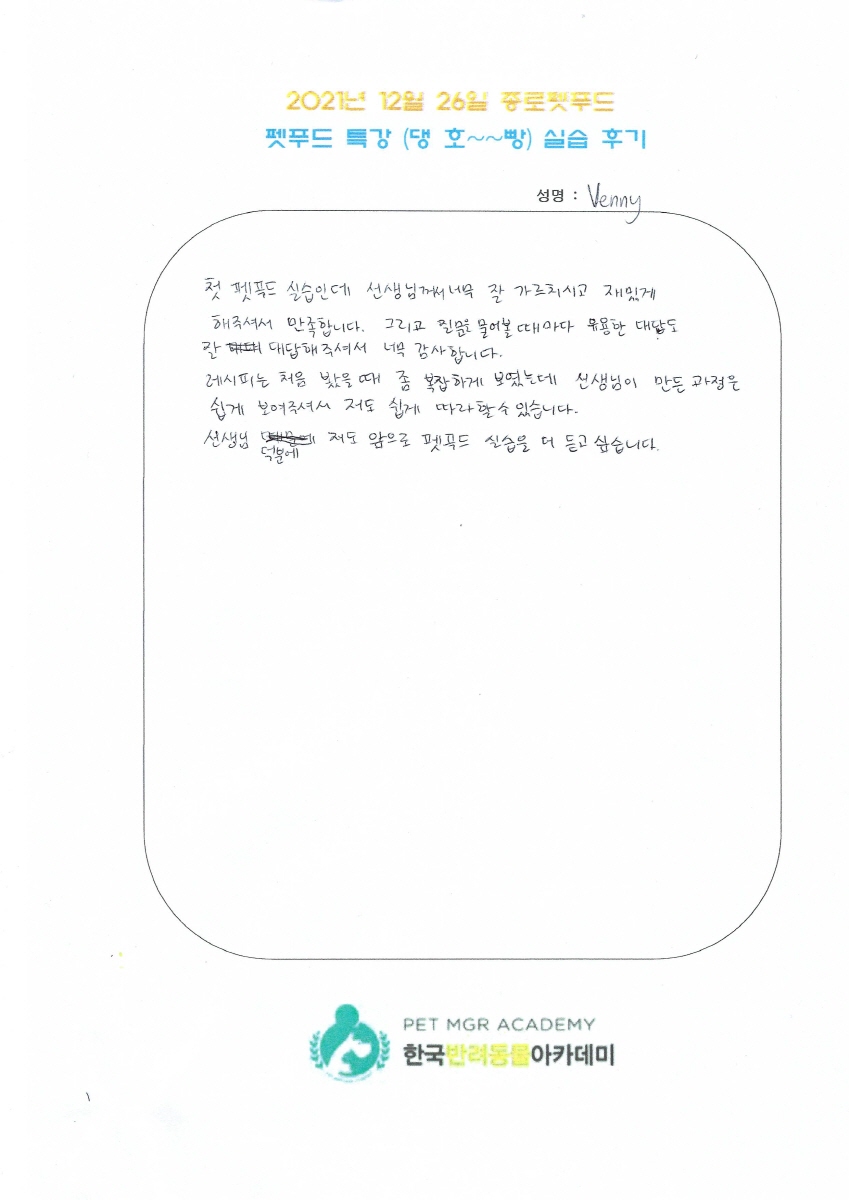 2021년 12월 26일 종로펫푸드
펫푸드 특강 (댕 호~~빵) 실습 후기
성명 : Venny
첫 펫푹드 실습인데 선생님께서 너무 잘 가르치시고 재밌게
해주셔서 만족합니다. 그리고 질문을 물어볼 때마다 유용한 대답도
잘 대답해주셔서 너무 감사합니다.
레시피는 처음 봤을 때 좀 복잡하게 보였는데 선생님이 만든 과정은
쉽게 보여주셔서 저도 쉽게 따라할 수 있습니다.
선생님 덕분에 저도 앞으로 펫푹드 실습을 더 듣고 싶습니다.
PET MGR ACADEMY
한국반려동물아카데미